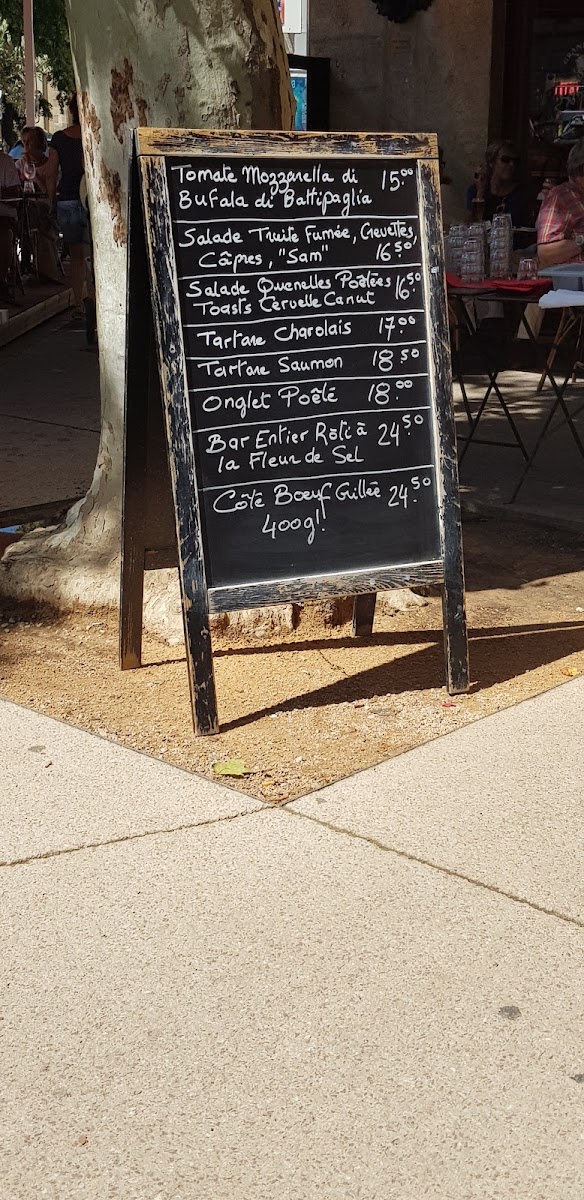 Tomate Mozzarella di 15.00
Bufala di Battipaglia
Salade Truite Fumée, Crevettes,
Câpres, "Sam" 16.50
Salade Quenelles Poêlées 16.50
Toasts Cervelle Canut
Tartare Charolais 17.00
Tartare Saumon 18.50
Onglet Poêlé 18.00
Bar Entier Rôti à 24.50
la Fleur de Sel
Côte Boeuf Grillée 24.50
400g!